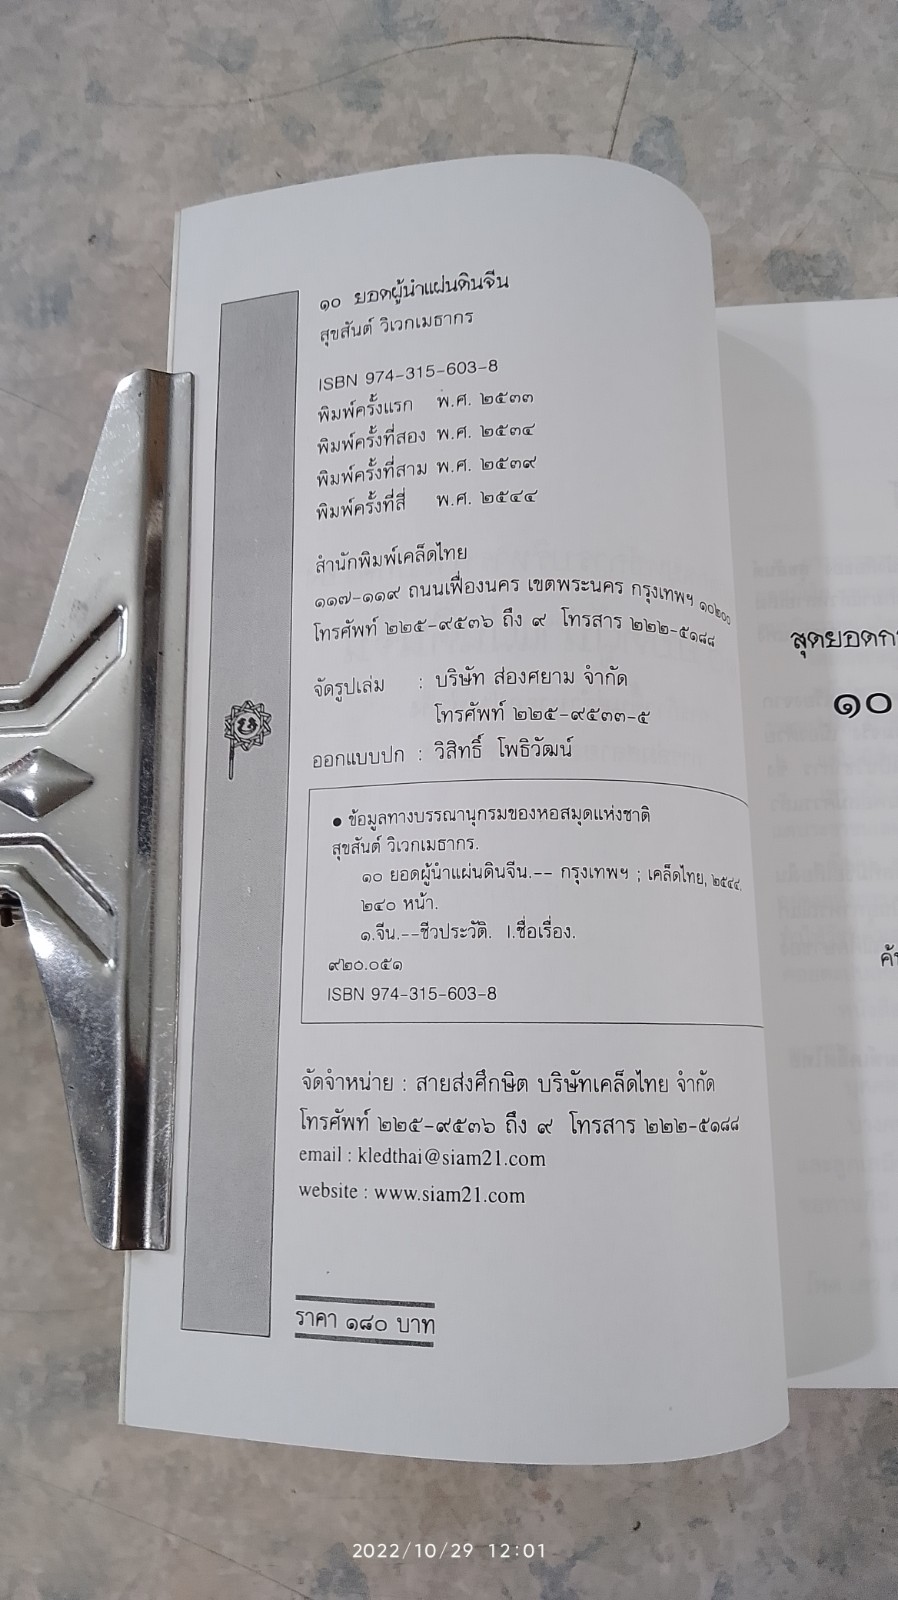 ๑๐ ยอดผู้นำแผ่นดินจีน
สุขสันต์ วิเวกเมธากร
ISBN 974-315-603-8
พิมพ์ครั้งแรก พ.ศ. ๒๕๓๓
พิมพ์ครั้งที่สอง พ.ศ. ๒๕๓๔
พิมพ์ครั้งที่สาม พ.ศ. ๒๕๓๙
พิมพ์ครั้งที่สี่ พ.ศ. ๒๕๔๔
สำนักพิมพ์เคล็ดไทย
๑๑๗-๑๑๙ ถนนเฟื่องนคร เขตพระนคร กรุงเทพฯ ๑๐๒๐๐
โทรศัพท์ ๒๒๕-๙๕๓๖ ถึง ๙ โทรสาร ๒๒๒-๕๑๘๘
จัดรูปเล่ม : บริษัท ส่องศยาม จำกัด
โทรศัพท์ ๒๒๕-๙๕๓๓-๕
ออกแบบปก : วิสิทธิ์ โพธิวัฒน์
● ข้อมูลทางบรรณานุกรมของหอสมุดแห่งชาติ
สุขสันต์ วิเวกเมธากร.
๑๐ ยอดผู้นำแผ่นดินจีน.-- กรุงเทพฯ ; เคล็ดไทย, ๒๕๔๔.
๒๔๐ หน้า.
๑.จีน.--ชีวประวัติ. I.ชื่อเรื่อง.
๙๒๐.๐๕๑
ISBN 974-315-603-8
จัดจำหน่าย : สายส่งศึกษิต บริษัทเคล็ดไทย จำกัด
โทรศัพท์ ๒๒๕-๙๕๓๖ ถึง ๙ โทรสาร ๒๒๒-๕๑๘๘
email : kledthai@siam21.com
website : www.siam21.com
ราคา ๑๘๐ บาท
๑๐
2022/10/29 12:01